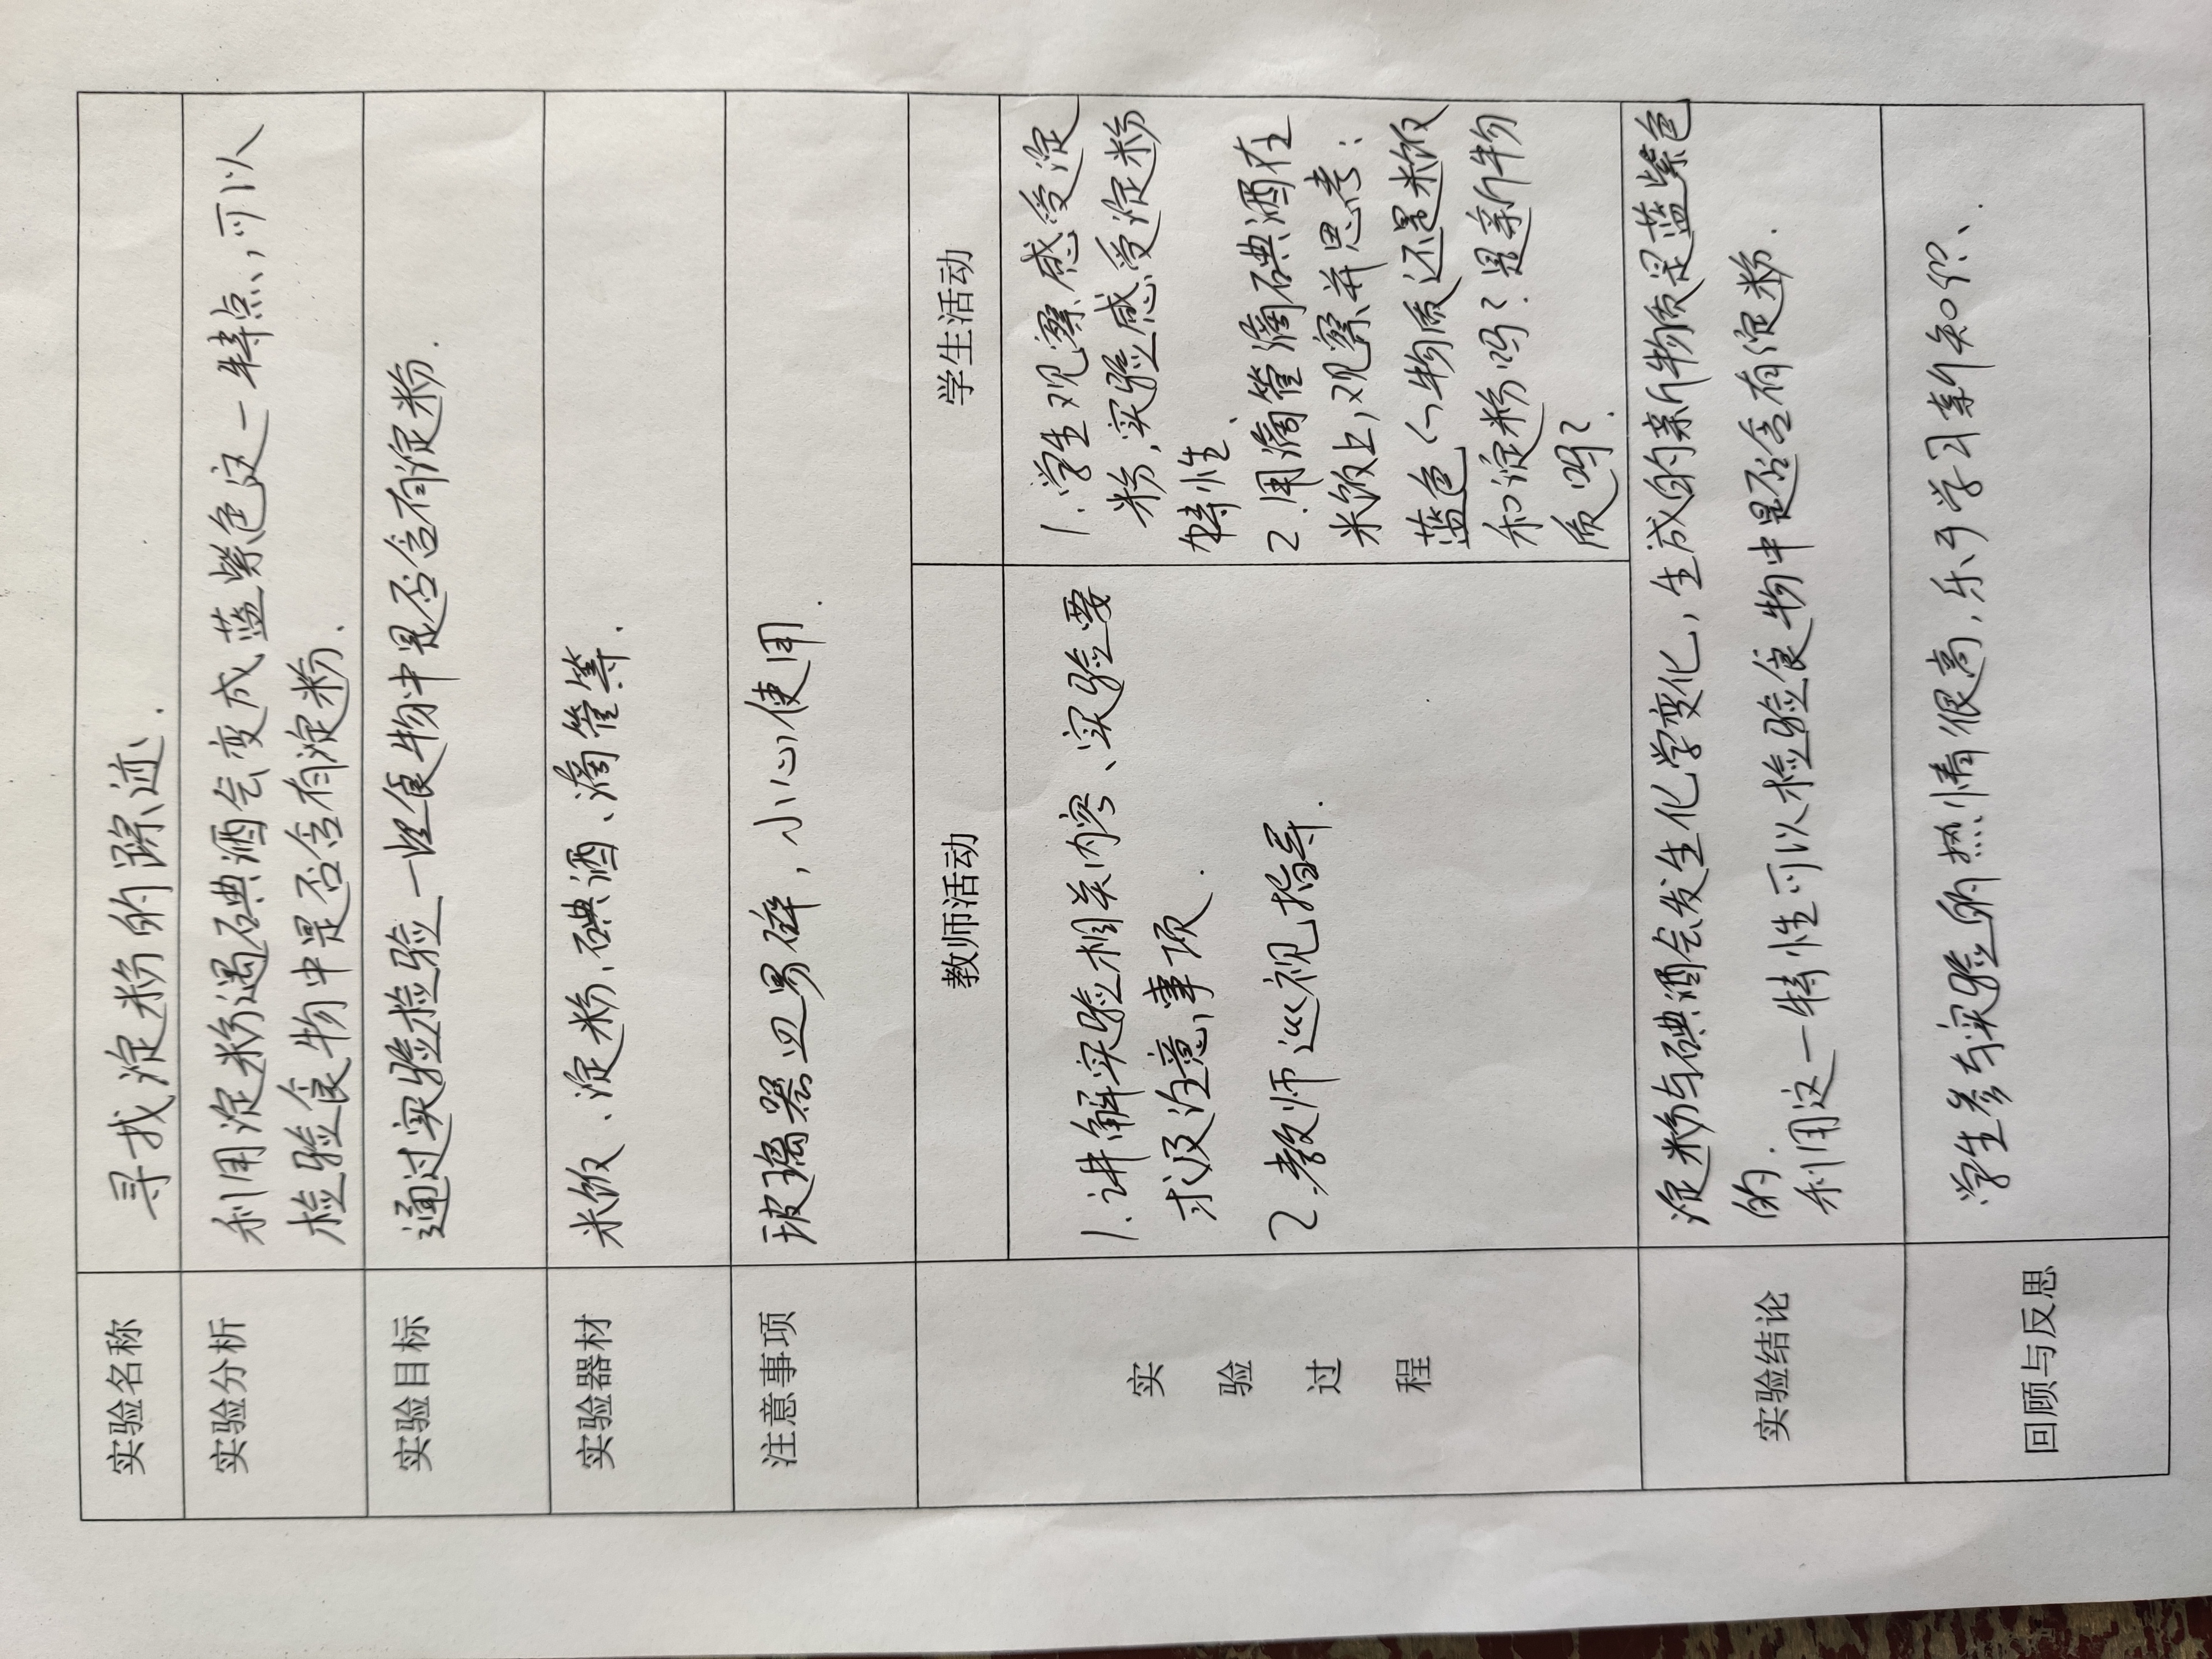 实验名称
寻找淀粉的踪迹.
实验分析
利用淀粉遇碘酒会变成蓝紫色这一特点,可以
检验食物中是否含有淀粉.
实验目标
通过实验检验一些食物中是否含有淀粉.
实验器材
米饭、淀粉、碘酒、滴管等.
注意事项
玻璃器皿易碎,小心使用.
实验过程
教师活动
1.讲解实验相关内容、实验要
求及注意事项.
2.教师巡视指导.
学生活动
1.学生观察感受淀
粉,实验感受淀粉
特性.
2.用滴管滴碘酒在
米饭上,观察并思考:
蓝色个物质还是米饭
和淀粉吗?是新物
质吗?
实验结论
淀粉与碘酒会发生化学变化,生成的新物质是蓝紫色
的.
利用这一特性可以检验食物中是否含有淀粉.
回顾与反思
学生参与实验的热情很高,乐于学习新知识、.